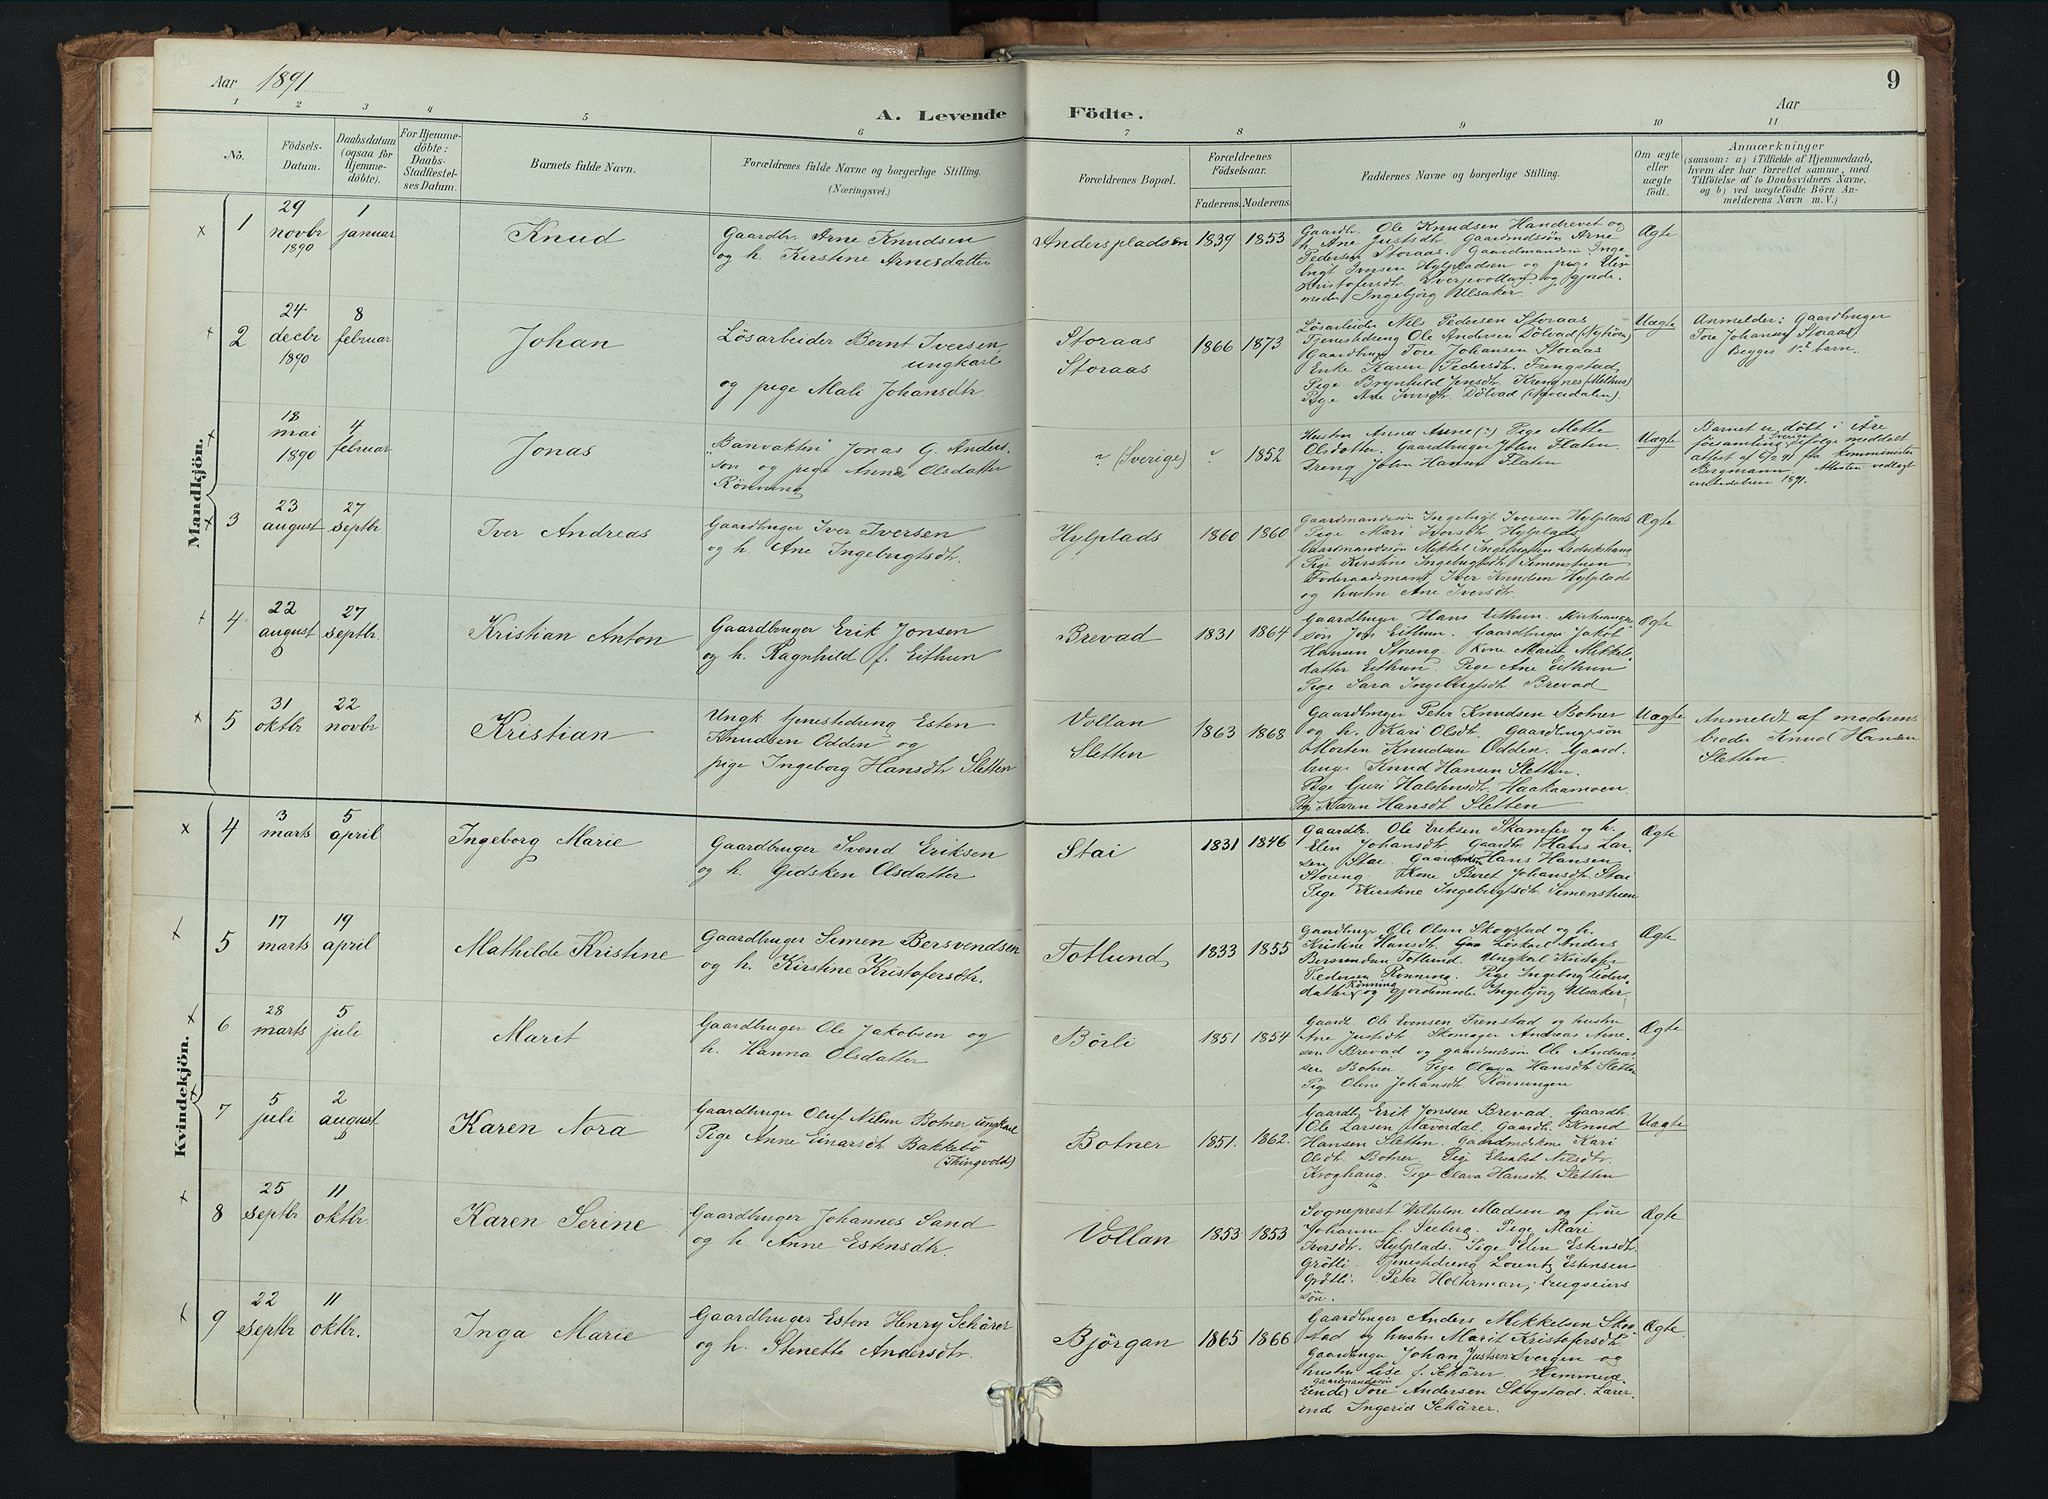 Aar 1891
A. Levende Födte.
Aar
9
1 2 3 4 5 6 7 8 9 10 11
Nö.
Födsels-Datum.
Daabsdatum (ogsaa for Hjemmedöbte).
For Hjemmedöbte: Daabs-Stadfæstelses Datum.
Barnets fulde Navn.
Forældrenes fulde Navne og borgerlige Stilling.
(Næringsvei.)
Forældrenes Bopæl.
Forældrenes Födselsaar.
Faderens. Moderens.
Faddernes Navne og borgerlige Stilling.
Om ægte eller uægte födt.
Anmærkninger
(saasom: a) i Tilfælde af Hjemmedaab,
hvem der har forrettet samme, med
Tilföielse af to Daabsvidners Navne,
og b) ved uægtefödte Börn An-
melderens Navn m. V.)
Mandkjön.
1
29 novbr 1890
1 januar
Knud
Gaardbr. Arne Knudsen
og h. Kirstine Arnesdatter
Andersplads
1839 1853
Gaardbr. Ole Knudsen Handrevet og
h. Ane Justsdtr. Gaardmdsön Arne
Pedersen Storaas. Gaardmandsön Inge
brigt Iversen Hylpladsen og pige Elen
Kristofersdtr. og gjorde
moder Ingebjörg Ulsaker.
Ægte
2
24 decbr 1890
8 februar
Johan
Lösarbeider Bernt Iversen
ungkarl
og pige Mali Johansdtr
Storaas
Storaas
1866 1873
Lösarbeider Nils Pedersen Storaas
Tjenestedreng Ole Andersen Dölvad
Gaardbruger Tore Johansen Storaas
Enke Karen Pedersdtr. Trengstad
Pige Brynhild Jensdtr. Krengnes (Melhus)
Pige Ane Iversdtr. Dölvad
Uægte
Anmelder: Gaardbruger
Tore Johansen Storaas
Begges 1ste barn.
18 mai 1890
4 februar
Jonas
"Banvakten" Jonas G. Anders-
son og pige Anne Olsdatter
Rönning
" (Sverige)
" 1852
Hustru Anna Pige Mette
Olsdatter. Gaardbruger John Flaten
Dreng John Hansen Flaten
Uægte
Barnet er döbt i Åre
församling Sverige ifölge meddelt
attest af 6/2 91 fra kommenister
Bergmann. Attesten vedlagt
1891.
3
23 august
27 septbr
Iver Andreas
Gaardbruger Iver Iversen
og h. Ane Ingebrigtsdtr.
Hylplads
1860 1860
Gaardmandssön Ingebrigt Iversen Hylplads
Pige Mari Iversdtr. Hylplads
Gaardmandssön Mikkel Ingebrigtsen
Pige Kirstine Ingebrigtsdtr. Simenstuen
Föderaadsmand Iver Knudsen Hylplads
og hustru Ane Iversdtr.
Ægte
4
22 august
27 septbr.
Kristian Anton
Gaardbruger Erik Jonsen
og h. Ragnhild f. Eithun
Brevad
1831 1864
Gaardbruger Hans Eithun.
sön Jon Eithun. Gaardbruger Jakob
Hansen Storeng. Kone Marie Mikkels
datter Eithun. Pige Ane Eithun
Pige Sara Ingebrigtsdtr Brevad
Ægte
5
31 oktbr
22 novbr
Kristian
Ungk tjenestedreng Esten
Knudsen Odden og
pige Ingeborg Hansdtr Sletten
Vollan
Sletten
1863 1868
Gaardbruger Peter Knudsen Botner
og h. Kari Olsdtr. Gaardbrugersön
Morten Knudsen Odden. Gaard-
bruger Knud Hansen Sletten.
Pige Guri Halstensdtr. Haakaamoen.
Pige Karen Hansdtr Sletten
Uægte
Anmeldt af moderens
broder Knud Hansen
Sletten.
Kvindekjön.
4
3 marts
5 april
Ingeborg Marie
Gaardbruger Svend Eriksen
og h. Gidsken Olsdatter
Stai
1831 1846
Gaardbr. Ole Eriksen Skamfer og h.
Elen Johansdtr. Gaardbr Hans Lar-
sen Stai. Hans Hansen
Storeng. Kone Beret Johansdtr Stai
Pige Kirstine Ingebrigtsdtr Simenstuen
Ægte
5
17 marts
19 april
Mathilde Kristine
Gaardbruger Simen Bersvendsen
og h. Kirstine Kristofersdtr.
Totlund
1833 1855
Gaardbruger Ole Olsen Skogstad og h.
Kristine Hansdtr. Löskarl Anders
Bersvendsen Totlund. Ungkarl Kristofer
Pedersen Rönning. Pige Ingeborg Peders
datter Rönning og gjordemoder Ingebjörg Ulsaker
Ægte
6
28 marts
5 juli
Marit
Gaardbruger Ole Jakobsen og
h. Hanna Olsdatter
Börli
1851 1854
Gaardbr. Ole Evensen Trenstad og hustru
Ane Justsdtr. Skomager Andreas Arne-
sen Brevad og gaardmdssön Ole Andreas-
sen Botner. Pige Olava Hansdtr Sletten
Pige Oline Johansdtr. Rönningen
Ægte
7
5 juli
2 august
Karen Nora
Gaardbruger Oluf Nilsen Botner ungkarl
Pige Anne Einarsdtr Bakkebö
(Thingvold)
Botner
1851. 1862.
Gaardbr Erik Jonsen Brevad. Gaardbr.
Ole Larsen Næverdal. Gaardbr. Knud
Hansen Sletten. Gaardmdskone Kari
Olsdtr. Botner. Pige Elisabet Nilsdtr.
Kroghaug. Pige Olava Hansdtr Sletten
Uægte
8
25 septbr
11 oktbr.
Karen Serine
Gaardbruger Johannes Sand
og h. Anne Estensdtr.
Vollan
1853 1853
Sogneprest Vilhelm Madsen og frue
Johanne f. Seeberg. Pige Mari
Iversdtr. Hylplads. Pige Elen Estensdtr.
Grötli. Tjenestedreng Lorents Estensen
Grötli. Peter Holterman, brugseiers
sön.
Ægte
9
22 septbr
11 oktbr.
Inga Marie
Gaardbruger Esten Henry Schärer
og h. Stenette Andersdtr.
Björgan
1865 1866
Gaardbruger Anders Mikkelsen Skog
stad og hustru Marit Kristofersdtr.
Gaardbruger Johan Justsen Svergen og
hustru Lise f. Schärer. Hemmevæ-
rende gaardmandssön Tore Andersen Skogstad. Lærer-
inde Ingerid Schärer.
Ægte.